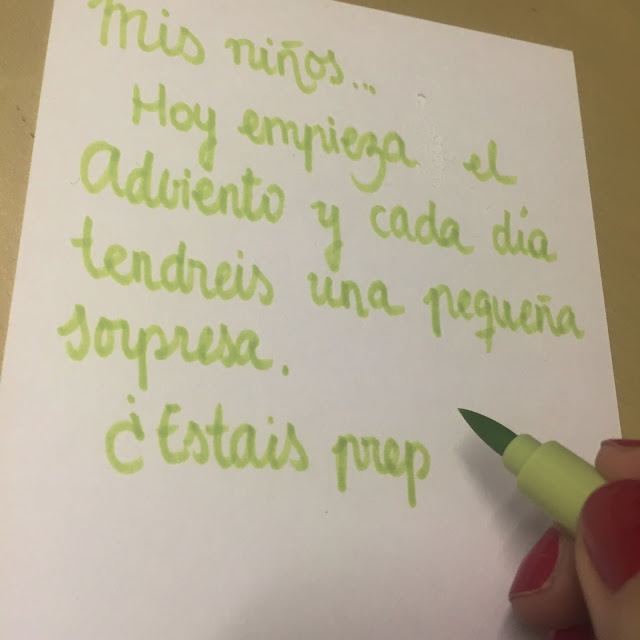 Mis niños...
Hoy empieza el
Adviento y cada día
tendreis una pequeña
sorpresa.
¿Estais prep